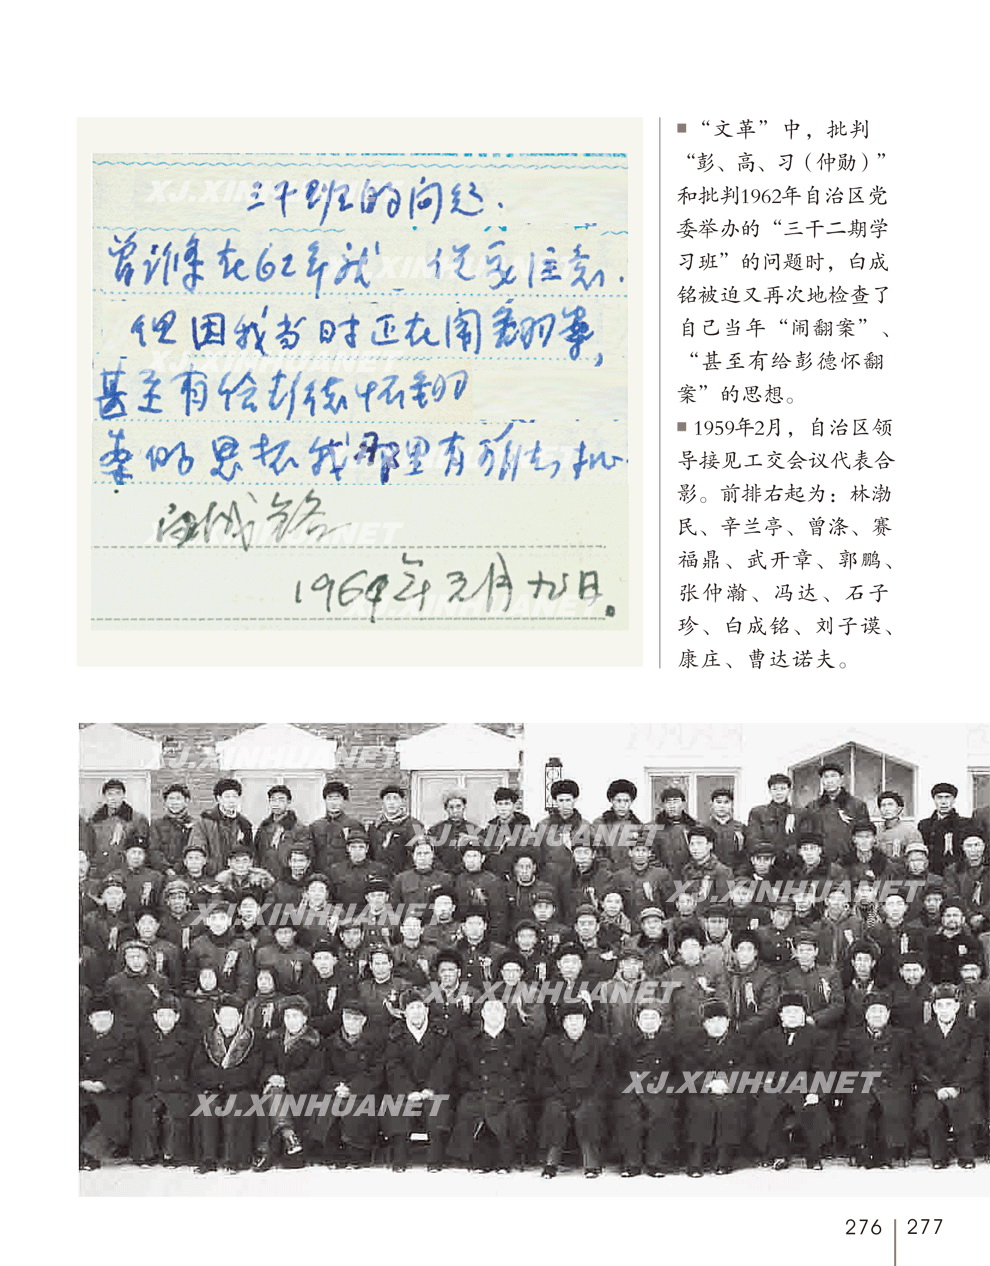 三干班的问题.
曾涤在62年就 促要注意.
但因我当时正在闹翻案,
甚至有给彭德怀翻
案的思想我那里有
白成铭
1964年元月九日.
■“文革”中，批判
“彭、高、习（仲勋）”
和批判1962年自治区党
委举办的“三干二期学
习班”的问题时，白成
铭被迫又再次地检查了
自己当年“闹翻案”、
“甚至有给彭德怀翻
案”的思想。
■1959年2月，自治区领
导接见工交会议代表合
影。前排右起为：林渤
民、辛兰亭、曾涤、赛
福鼎、武开章、郭鹏、
张仲瀚、冯达、石子
珍、白成铭、刘子谟、
康庄、曹达诺夫。
XJ.XINHUANET
XJ.XINHUANET
XJ.XINHUANET
XJ.XINHUANET
XJ.XINHUANET
XJ.XINHUANET
XJ.XINHUANET
XJ.XINHUANET
XJ.XINHUANET
XJ.XINHUANET
XJ.XINHUANET
XJ.XINHUANET
XJ.XINHUANET
276 277